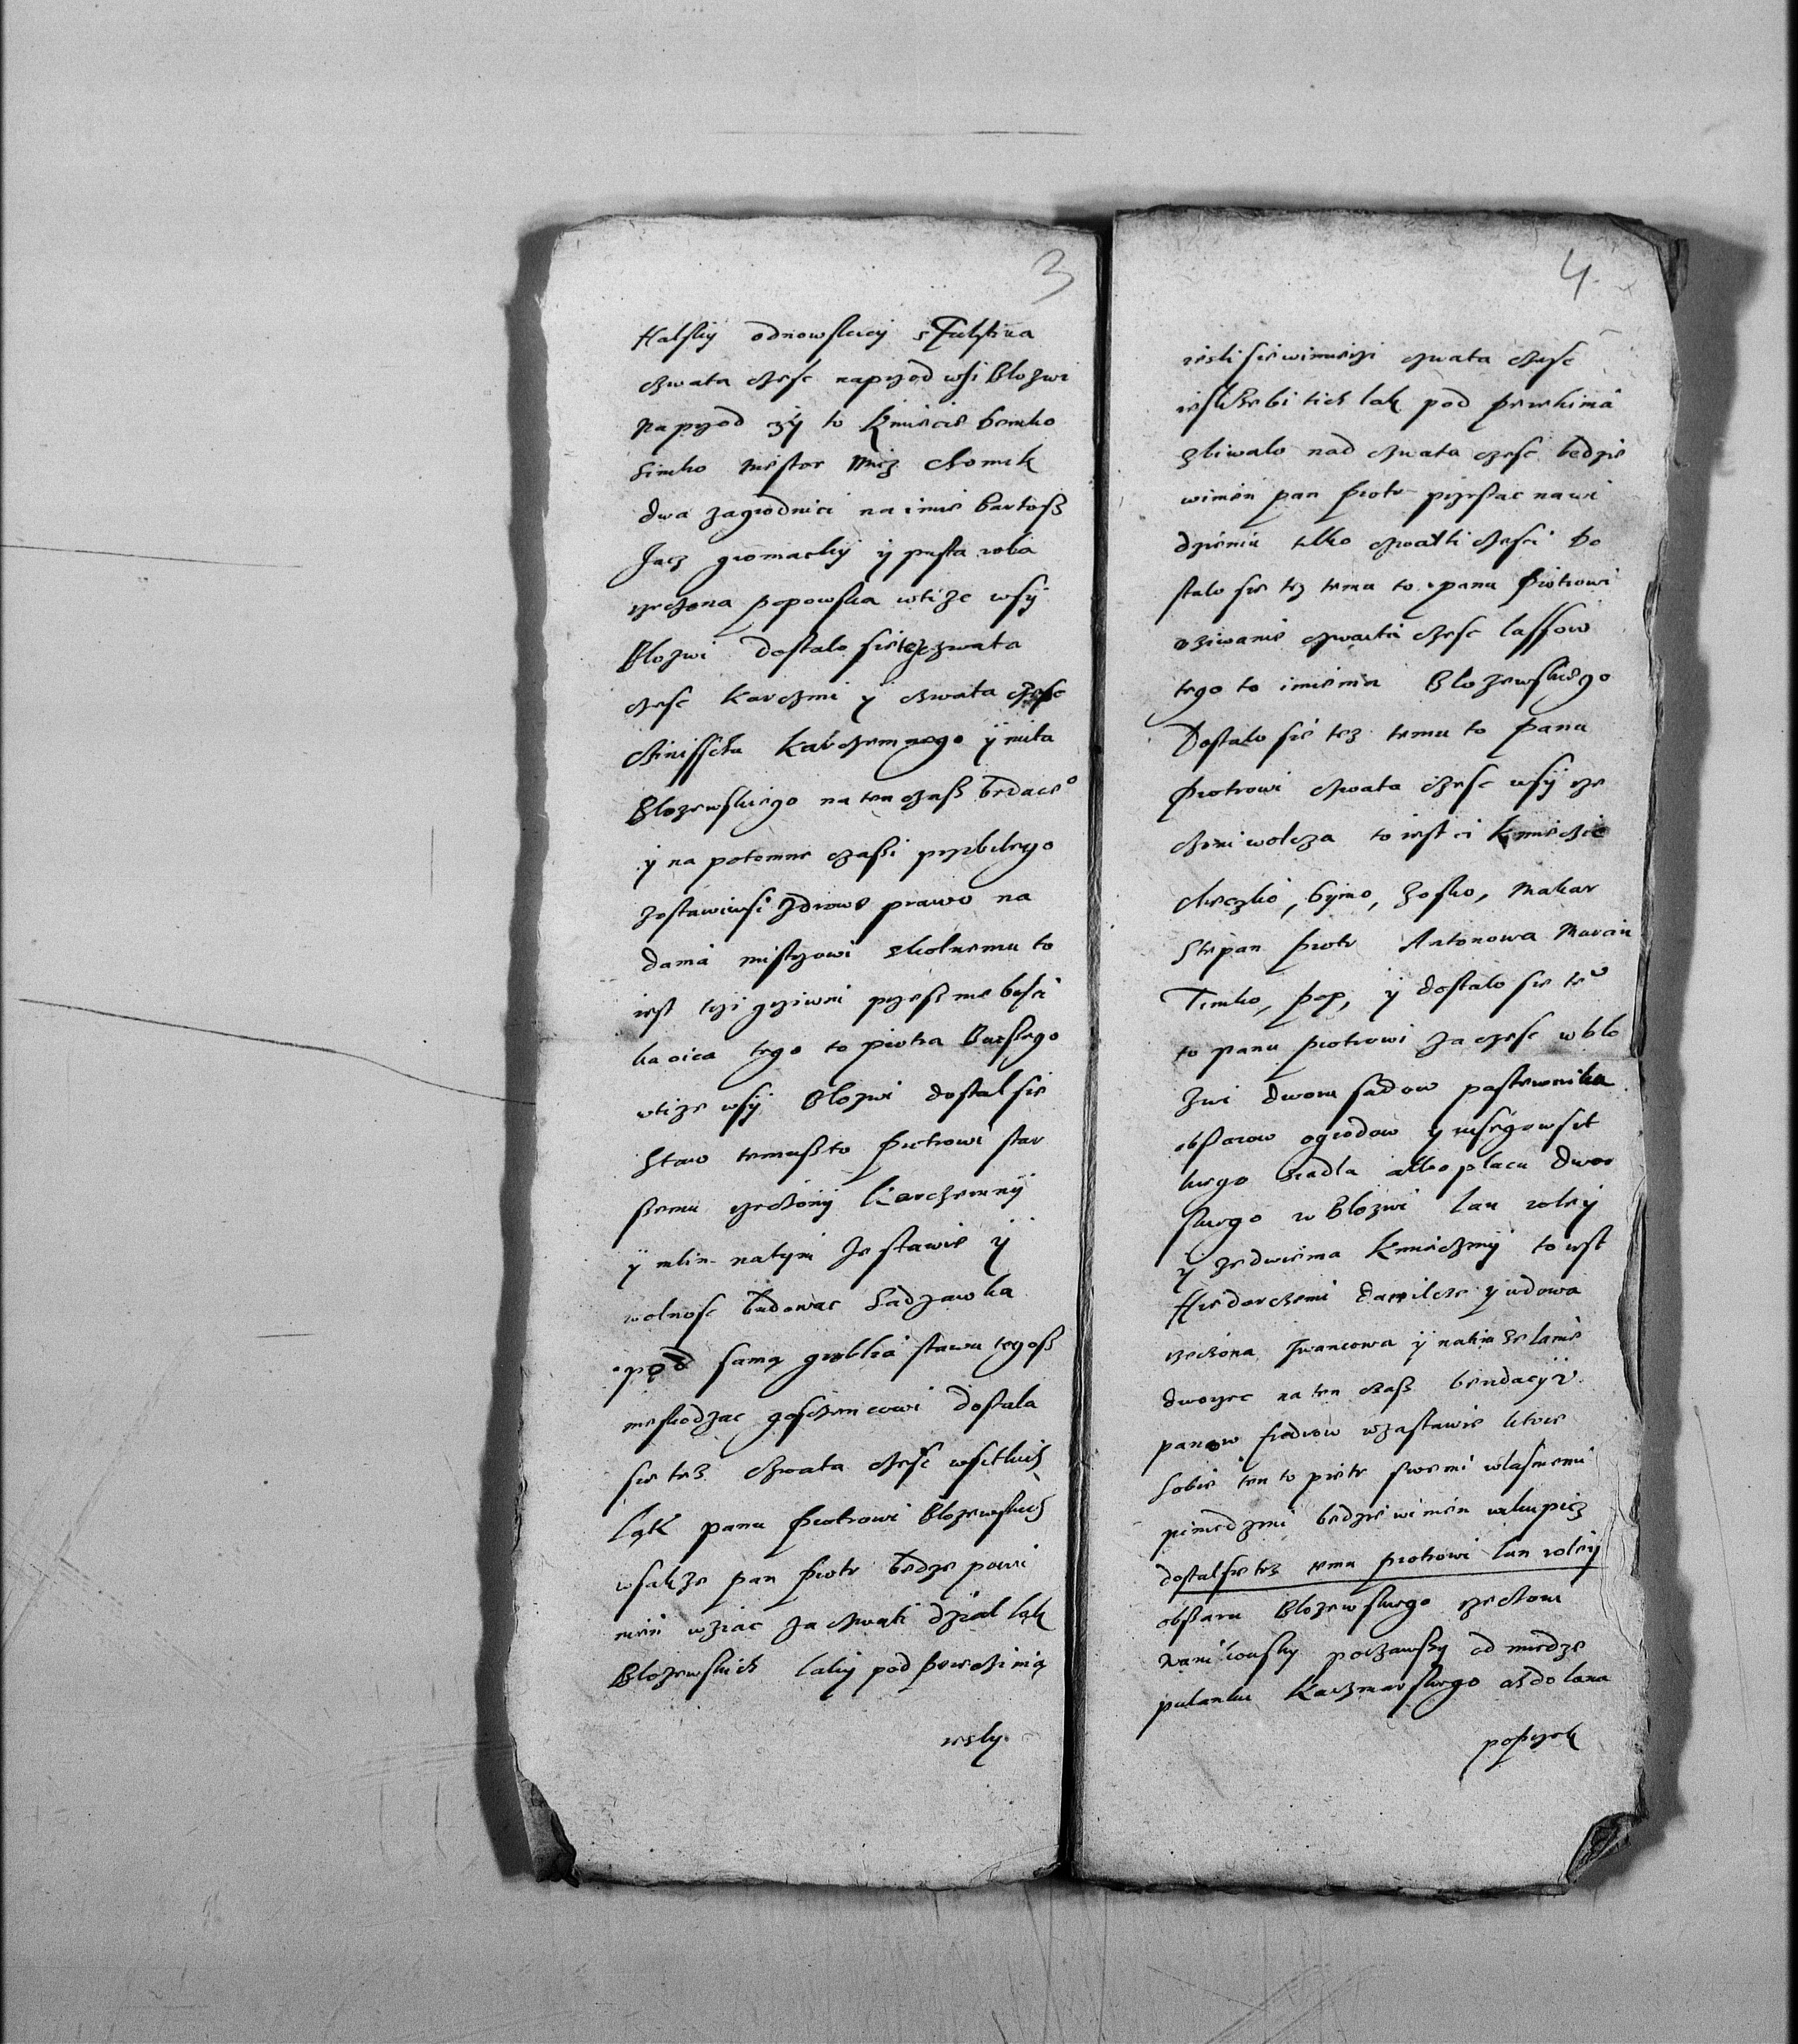 3
Halski odnowskiej s Fulstina
czwata czesc naprzod wsi Blozwi
naprzod cziy to Kmiecie Senko
Simko Nestor Misz Chomik
dwa zagrodnici na imie Bartoss
Jacz gromaczky y pusta rola
rzeczona popowska wti ze wsy
Blozwi dostalo sie tez czwata
czesc Karczmi y czwata czesc
czinsschu karczemnego y mita
Blozewskiego na ten czass bedace°
y na potomne czassi przibilego
zostawiwsi zdrowe prawo na
dania mistrzowi skolnemu to
iest trzi grziwni przess niebosci
ka oica tego to piotra starssego
wti ze wsy Blozwi dostal sie
Staw temussto Piotrowi star
ssemu rzeczony Karczemny
y mlin na tym ze stawie y
wolnosc budowac Sadzawka
pod samą groblią stawu tegoss
nieskodzac goscziencowi dostala
sie tez czwata czesc wsitkich
Ląk panu Piotrowi Blozewskich
wsakze pan Piotr bedze powi
nien wziac za czwati dzial ląk
Blozewskich laky pod
iesly
4
iesli sie wimierzi czwata czesc
iesli zebi tich lak pod
zbiwalo nad czwata czesc bedzie
winien pan Piotr przestac na wi
dzieniu tilko czwatki czesci Do
stalo sie tez temu to panu Piotrowi
uziwanie czwarta czesc lassow
tego to imienia Blozewskiego
Dostalo sie tez temu to Panu
Piotrowi czwata czesc wsy rze
czoni wolcza to iest ci Kmieczie
Makar
Stepan Piotr Antonowa
Timko, pop, y dostalo sie te
to panu Piotrowi za czesc w Blo
zwi dworu sadow pastewnika
obssarow ogrodow y insego wsit
kiego siadla albo placu dwor
skiego w Blozwi lan roley
y ze dwiema Kmieczmy to iest
danilcze y udowa
rzeczona Iwancowa y na tim ze lanie
dworzec na ten czass bendacy v
panow Fredrow w zastawie ktore
sobie ten to pietr swemi wlasnemi
pieniedzmi bedzie winien wikupicz
dostal sie tez temu piotrowi lan roley
obssaru Blozewskiego rzeczoni
poczawssy od miedze
pulanku Kaczmarskiego asz do lana